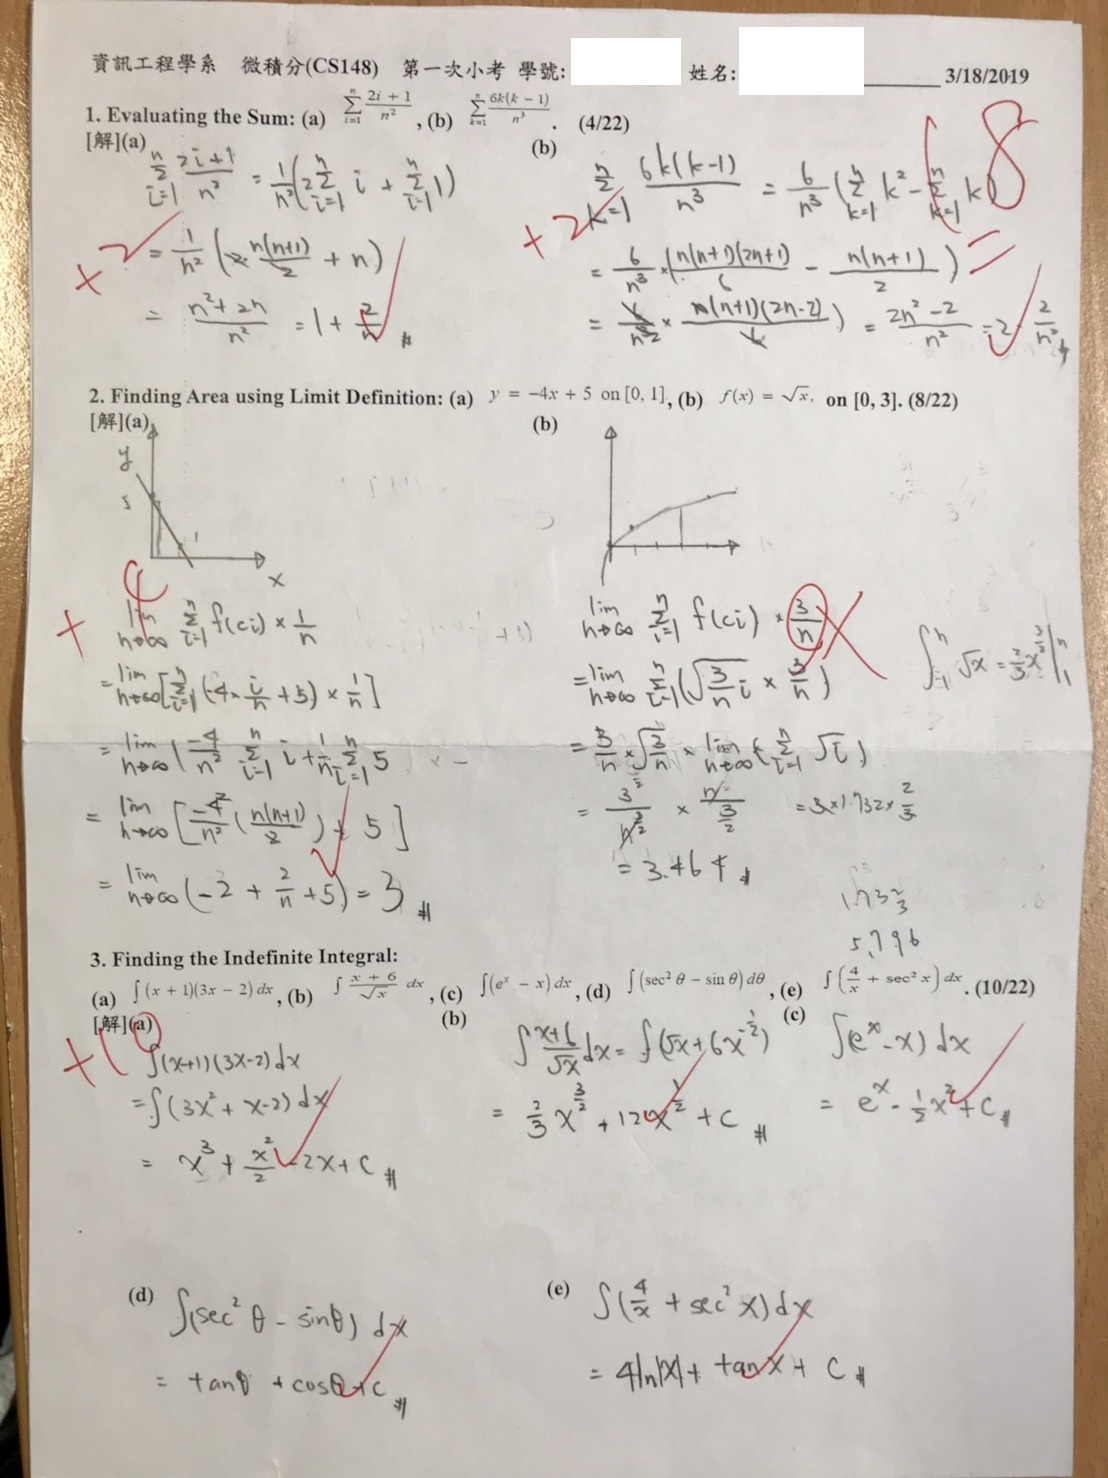 資訊工程學系 微積分(CS148) 第一次小考 學號: 姓名: 3/18/2019
1. Evaluating the Sum: (a) \sum_{i=1}^{n} \frac{2i + 1}{n^2}, (b) \sum_{k=1}^{n} \frac{6k(k - 1)}{n^3}. (4/22)
18
[解](a)
\sum_{i=1}^{n} \frac{2i+1}{n^2} = \frac{1}{n^2}(2\sum_{i=1}^{n} i + \sum_{i=1}^{n} 1)
+2
= \frac{1}{n^2}(2 \cdot \frac{n(n+1)}{2} + n)
= \frac{n^2+2n}{n^2} = 1 + \frac{2}{n} #
(b)
\sum_{k=1}^{n} \frac{6k(k-1)}{n^3} = \frac{6}{n^3}(\sum_{k=1}^{n} k^2 - \sum_{k=1}^{n} k)
+2
= \frac{6}{n^3} × (\frac{n(n+1)(2n+1)}{6} - \frac{n(n+1)}{2})
= \frac{6}{n^{3 2}} × \frac{n(n+1)(2n-2)}{6}) = \frac{2n^2-2}{n^2} = 2 - \frac{2}{n^2} #
2. Finding Area using Limit Definition: (a) y = −4x + 5 on [0, 1], (b) f(x) = \sqrt{x}, on [0, 3]. (8/22)
[解](a)
y
5
1
x
+4
\lim_{n→∞} \sum_{i=1}^{n} f(ci) × \frac{1}{n}
= \lim_{n→∞} [\sum_{i=1}^{n} (-4 × \frac{i}{n} + 5) × \frac{1}{n}]
= \lim_{n→∞} (\frac{-4}{n^2} \sum_{i=1}^{n} i + \frac{1}{n} \sum_{i=1}^{n} 5
= \lim_{n→∞} [\frac{-4}{n^2} (\frac{n(n+1)}{2}) + 5]
= \lim_{n→∞} (-2 + \frac{2}{n} + 5) = 3 #
(b)
\lim_{n→∞} \sum_{i=1}^{n} f(ci) × \frac{3}{n}
= \lim_{n→∞} \sum_{i=1}^{n} (\sqrt{\frac{3}{n} i} × \frac{3}{n})
= \frac{3}{n} × \sqrt{\frac{3}{n}} × \lim_{n→∞} (\sum_{i=1}^{n} \sqrt{i})
= \frac{3^{\frac{3}{2}}}{n^{\frac{3}{2}}} × \frac{n^{\frac{3}{2}}}{\frac{3}{2}} = 3×1.732×\frac{2}{3}
= 3.464 #
\int_{i=1}^{n} \sqrt{x} = \frac{2}{3} x^{\frac{3}{2}} |_1^n
5.796
3. Finding the Indefinite Integral:
(a) \int (x + 1)(3x − 2) dx, (b) \int \frac{x + 6}{\sqrt{x}} dx, (c) \int (e^x − x) dx, (d) \int (sec^2 θ − sin θ) dθ, (e) \int (\frac{4}{x} + sec^2 x) dx. (10/22)
[解](a)
+10
\int (x+1)(3x-2) dx
= \int (3x^2 + x - 2) dx
= x^3 + \frac{x^2}{2} - 2x + C #
(b)
\int \frac{x+6}{\sqrt{x}} dx = \int (\sqrt{x} + 6x^{-\frac{1}{2}})
= \frac{2}{3} x^{\frac{3}{2}} + 12x^{\frac{1}{2}} + C #
(c)
\int (e^x - x) dx
= e^x - \frac{1}{2} x^2 + C #
(d)
\int (sec^2 θ - sinθ) dx
= tanθ + cosθ + C #
(e)
\int (\frac{4}{x} + sec^2 x) dx
= 4ln|x| + tan x + C #